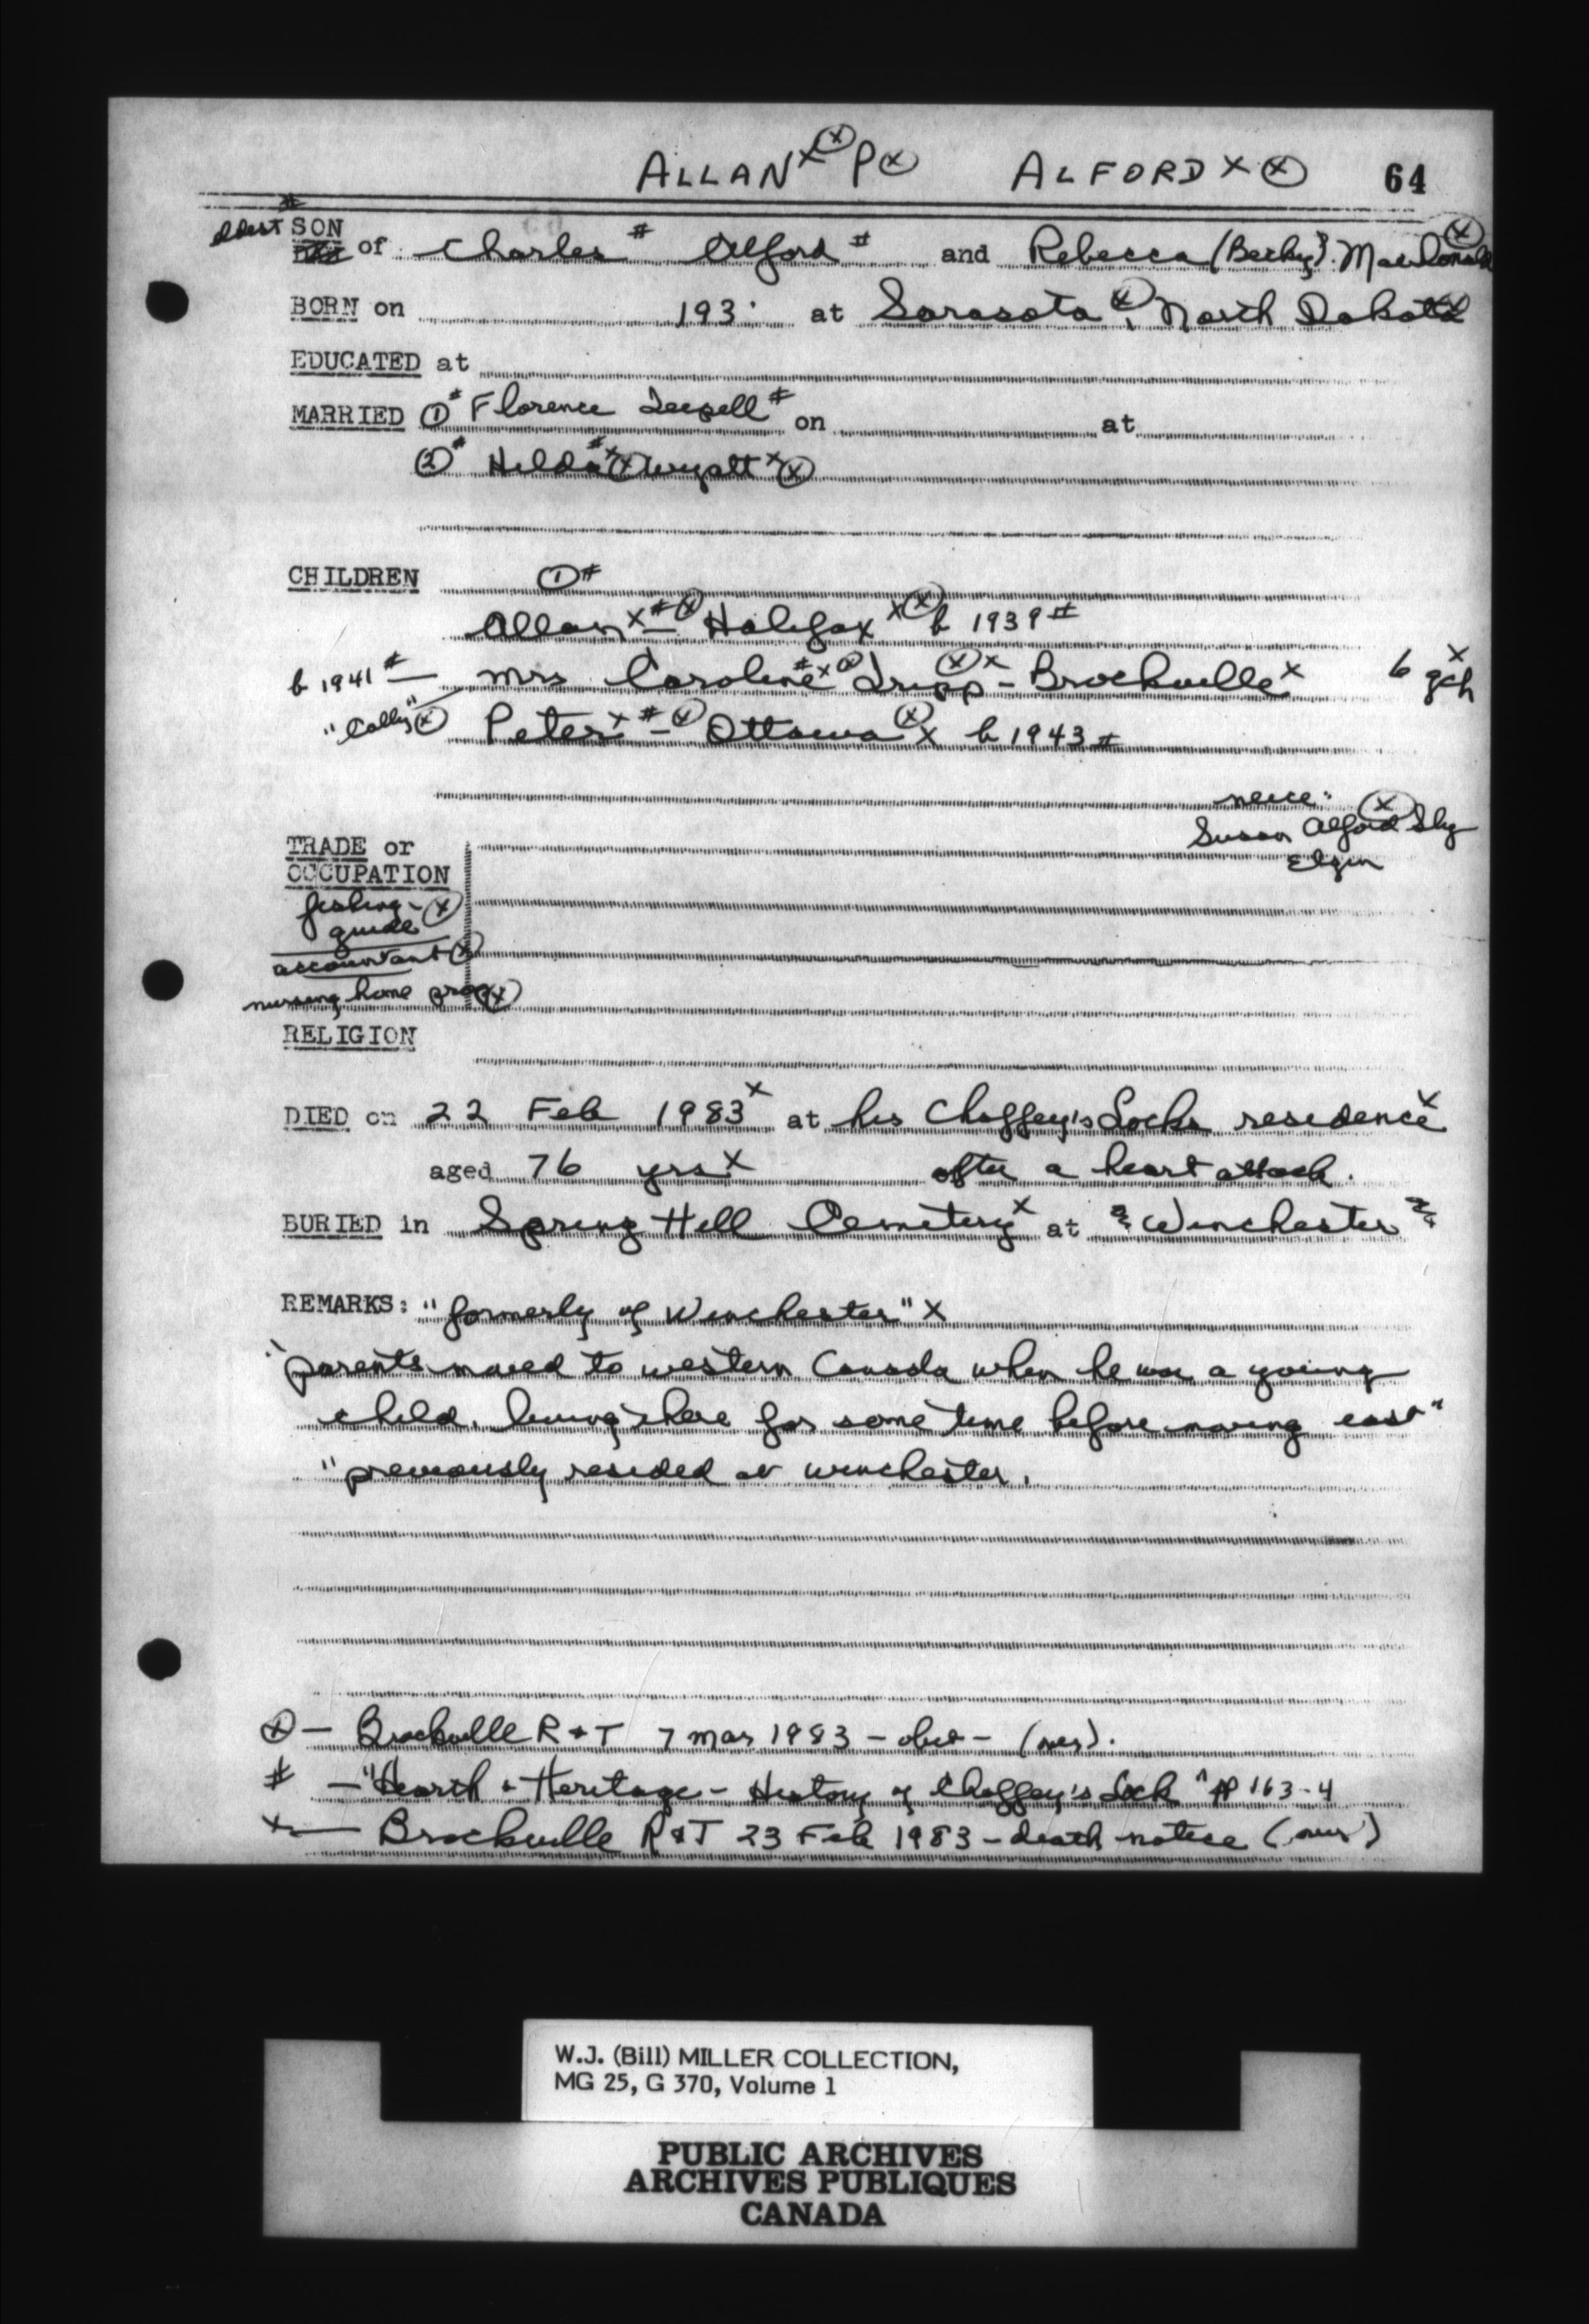 ALLAN x ⓧ P ⓧ ALFORD x ⓧ 64
eldest # SON of Charles # Alford # and Rebecca (Becky) MacDonald ⓧ
BORN on 193 at Sarasota ⓧ, North Dakota
EDUCATED at
MARRIED ① # Florence Leepell # on at
② # Hilda # x ⓧ Wyatt x ⓧ
CHILDREN ① #
Allan x # ⓧ - Halifax x ⓧ b 1939 #
b 1941 # — Mrs Caroline # x ⓧ Tripp ⓧ x - Brockville x 6 gch x
"Cally" ⓧ Peter x # ⓧ - Ottawa ⓧ x b 1943 #
neice:
Susan Alford Sly ⓧ
Elgin
TRADE or
OCCUPATION
fishing - ⓧ
guide
accountant ⓧ
nursing home prop ⓧ
RELIGION
DIED on 22 Feb 1983 x at his Chaffey's Locks residence x
aged 76 yrs x after a heart attack.
BURIED in Spring Hill Cemetery x at Winchester
REMARKS: "formerly of Winchester" x
"parents moved to western Canada when he was a young
child, living there for some time before moving east"
"previously resided at Winchester.
ⓧ — Brockville R & T 7 Mar 1983 - obit - (over).
# — "Hearth & Heritage - History of Chaffey's Lock" pp 163-4
x — Brockville R & T 23 Feb 1983 - death notice (over)
W.J. (Bill) MILLER COLLECTION,
MG 25, G 370, Volume 1
PUBLIC ARCHIVES
ARCHIVES PUBLIQUES
CANADA